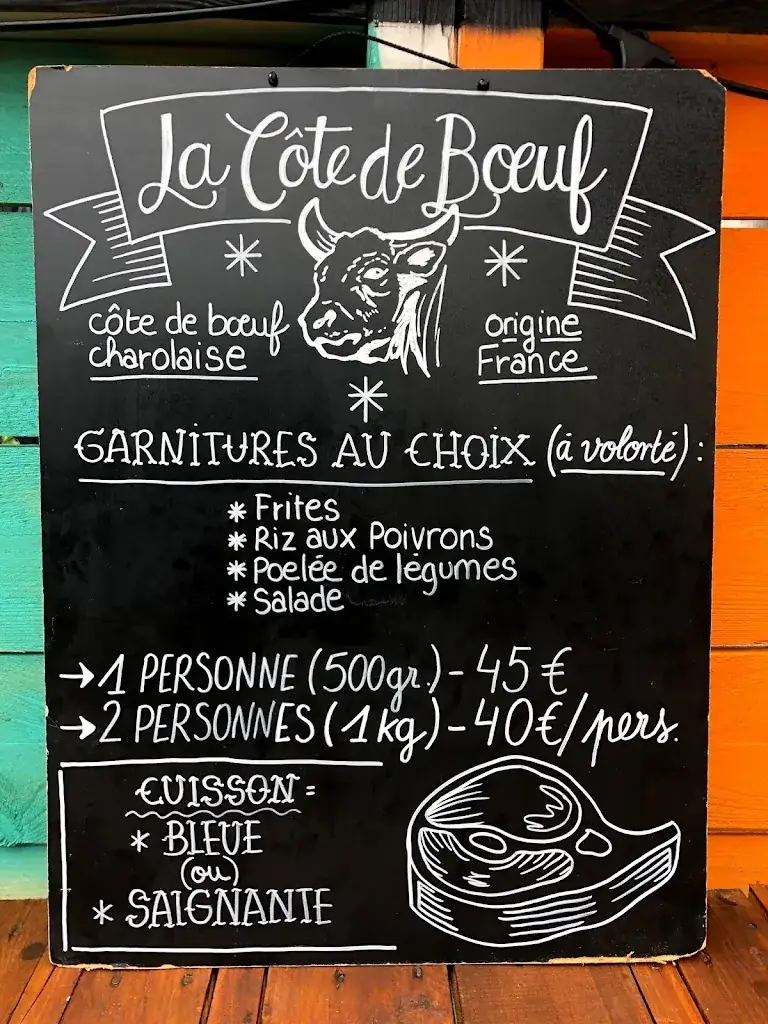 La Côte de Bœuf
côte de bœuf
charolaise
origine
France
GARNITURES AU CHOIX (à volonté) :
* Frites
* Riz aux Poivrons
* Poelée de légumes
* Salade
→ 1 PERSONNE (500gr.) - 45 €
→ 2 PERSONNES (1kg) - 40€/pers.
CUISSON =
* BLEUE
(ou)
* SAIGNANTE